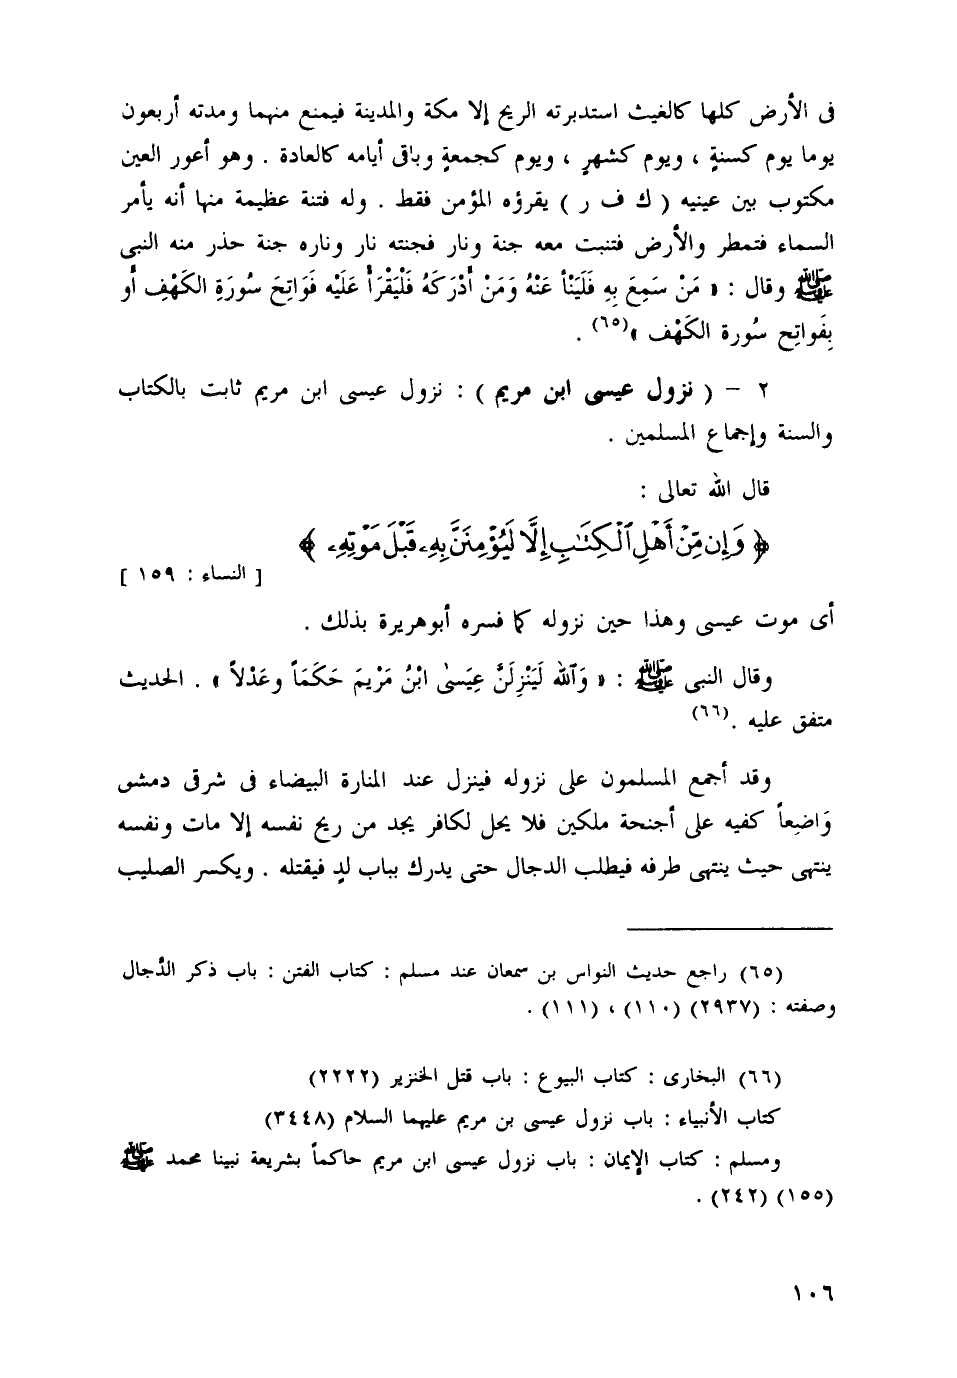 فى الأرض كلها كالغيث استدبرته الريح إلا مكة والمدينة فيمنع منهما ومدته أربعون
يوما يوم كسنةٍ ، ويوم كشهرٍ ، ويوم كجمعةٍ وباقى أيامه كالعادة . وهو أعور العين
مكتوب بين عينيه ( ك ف ر ) يقرؤه المؤمن فقط . وله فتنة عظيمة منها أنه يأمر
السماء فتمطر والأرض فتنبت معه جنة ونار فجنته نار وناره جنة حذر منه النبى
ﷺ وقال : « مَنْ سَمِعَ بِهِ فَلَيَنْأ عَنْهُ وَمَنْ أَدْرَكَهُ فَلْيَقْرَأْ عَلَيْه فَوَاتِحَ سُورَةِ الكَهْفِ أَو
بِفَواتِح سُورة الكَهْف »(٦٥) .
٢ – ( نزول عيسى ابن مريم ) : نزول عيسى ابن مريم ثابت بالكتاب
والسنة وإجماع المسلمين .
قال الله تعالى :
﴿ وَإِن مِّنْ أَهْلِ ٱلْكِتَٰبِ إِلَّا لَيُؤْمِنَنَّ بِهِۦ قَبْلَ مَوْتِهِۦ ﴾
[ النساء : ١٥٩ ]
أى موت عيسى وهذا حين نزوله كما فسره أبوهريرة بذلك .
وقال النبى ﷺ : « وَٱلله لَيَنْزِلَنَّ عِيَسىٰ ابْنُ مَرْيمَ حَكَمَاً وعَدْلاً » . الحديث
متفق عليه .(٦٦)
وقد أجمع المسلمون على نزوله فينزل عند المنارة البيضاء فى شرقى دمشق
وَاضِعاً كفيه على أجنحة ملكين فلا يحل لكافر يجد من ريح نفسه إلا مات ونفسه
ينتهى حيث ينتهى طرفه فيطلب الدجال حتى يدرك بباب لدٍ فيقتله . ويكسر الصليب
(٦٥) راجع حديث النواس بن سمعان عند مسلم : كتاب الفتن : باب ذكر الدَّجال
وصفته : (٢٩٣٧) (١١٠) ، (١١١) .
(٦٦) البخارى : كتاب البيوع : باب قتل الخنزير (٢٢٢٢)
كتاب الأنبياء : باب نزول عيسى بن مريم عليهما السلام (٣٤٤٨)
ومسلم : كتاب الإيمان : باب نزول عيسى ابن مريم حاكماً بشريعة نبينا محمد ﷺ
(١٥٥) (٢٤٢) .
١٠٦